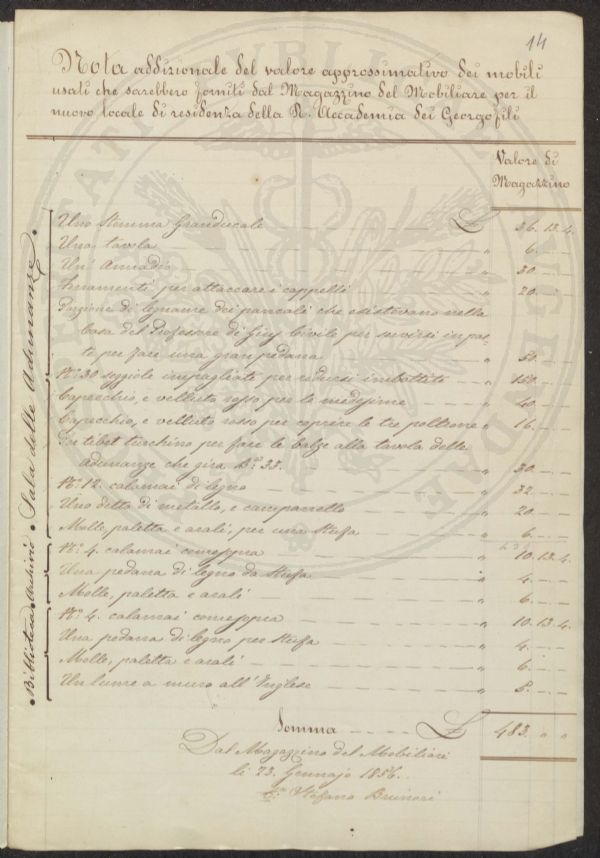 14
Nota addizionale del valore approssimativo dei mobili
usati che sarebbero forniti dal Magazzino del Mobiliare per il
nuovo locale di residenza della R. Accademia dei Georgofili
Valore di
Magazzino
Sala delle Adunanze
Uno Stemma Granducale £ 36. 13. 4
Una tavola " 6.
Un' Armadio " 30.
Ferramenti per attaccare i cappelli " 20.
Porzione di legname dei pancali che esistevano nella
Casa del Professore di Giu. Civile per servirsi in par-
te per fare una gran pedana " 50.
N° 30 seggiole impagliate per ridursi imbottite " 180.
Capecchio, e velluto rosso per le medesime " 40.
Capecchio, e velluto rosso per coprire le tre poltrone " 16.
tibet turchino per fare le balze alla tavola delle
adunanze che gira Ba 33. " 30.
N° 12. calamai di legno " 32.
Uno detto di metallo, e campanello " 20.
Molle, paletta e arali, per una Stufa " 6.
Archivio
N° 4. calamai comeppra " 10. 13. 4.
Una pedana di legno da Stufa " 4.
Molle, paletta e arali " 6.
Biblioteca
N° 4. calamai comeppra " 10. 13. 4.
Una pedana di legno per Stufa " 4.
Molle, paletta e arali " 6.
Un lume a muro all'Inglese " 8.
Somma £ 483. " "
Dal Magazzino del Mobiliare
li 23. Gennajo 1856.
Stefano Brunori